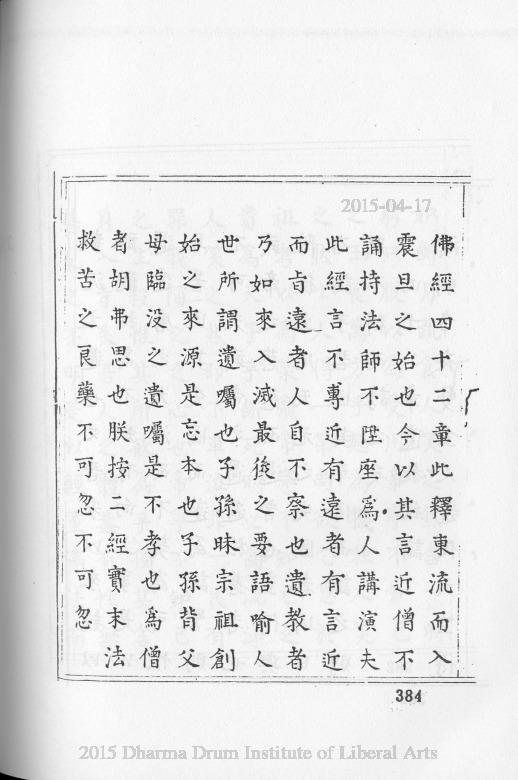 2015-04-17
佛經四十二章此釋東流而入
震旦之始也今以其言近僧不
誦持法師不陞座爲人講演夫
此經言不專近有遠者有言近
而㫖遠者人自不察也遺教者
乃如來入滅最後之要語喻人
世所謂遺囑也子孫昧宗祖創
始之來源是忘本也子孫背父
母臨没之遺囑是不孝也爲僧
者胡弗思也朕按二經實末法
救苦之良藥不可忽不可忽
384
2015 Dharma Drum Institute of Liberal Arts